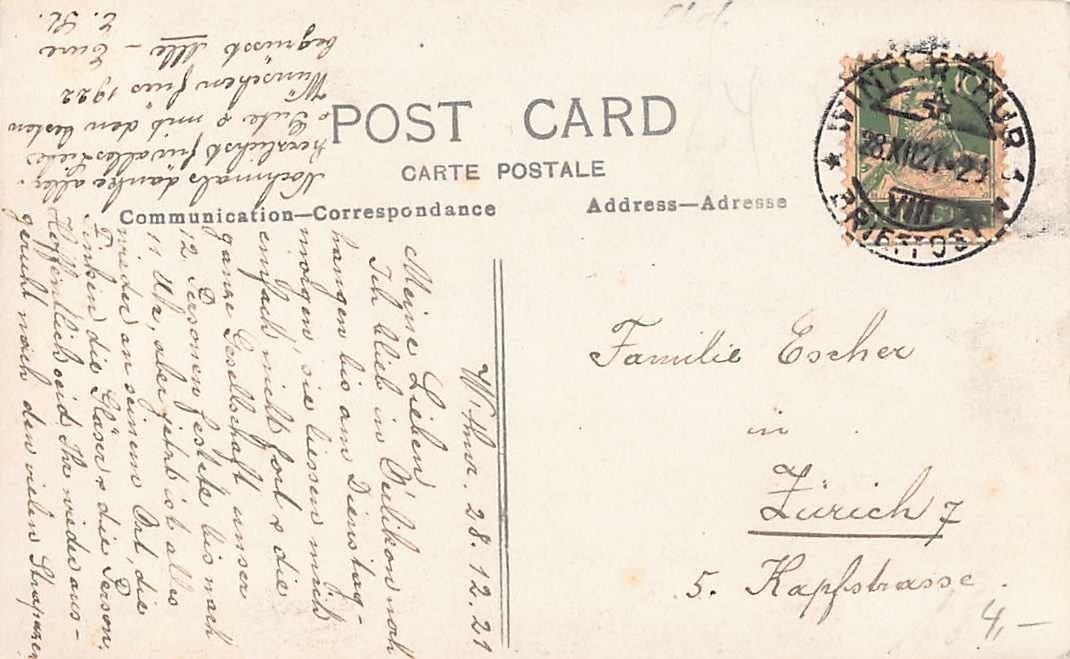 POST CARD
CARTE POSTALE
Communication—Correspondance
Address—Adresse
WINTERTHUR 1
28.XII.21
VIII
BRIEFPOST
10
W'thur. 28. 12. 21
Meine Lieben
Ich blieb in noch
hangen bis am Dienstag-
morgen, sie liessen mich
einfach nicht fort & die
ganze Gesellschaft unser
12 Personen festete bis nach
11 Uhr, aber jetzt ist alles
wieder an seinem Ort, die
die Gläser & die Person.
Hoffentlich seid Ihr wieder aus-
geruht nach den vielen Strapazen
Nochmals danke allen
herzlichst für alles Liebe
& Gute & mit den besten
Wünschen fürs 1922
begrüsst Alle – Eure
E. R.
Familie Escher
in
Zürich 7
5. Kapfstrasse.
4,–